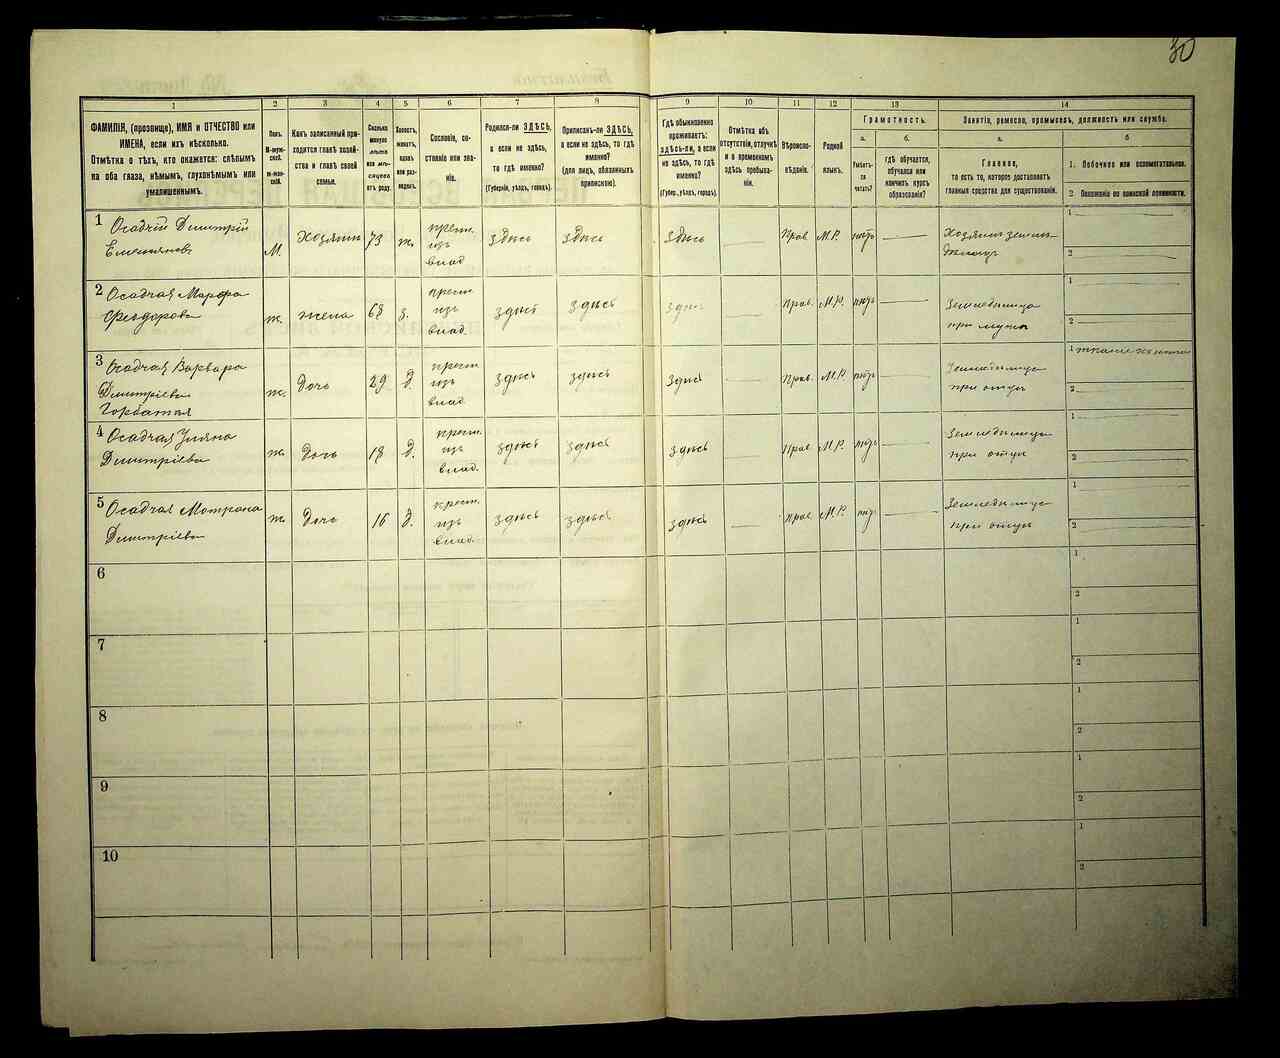 30
1 2 3 4 5 6 7 8 9 10 11 12 13 14
ФАМИЛІЯ, (прозвище), ИМЯ и ОТЧЕСТВО или
ИМЕНА, если ихъ нѣсколько.
Отмѣтка о тѣхъ, кто окажется: слѣпымъ
на оба глаза, нѣмымъ, глухонѣмымъ или
умалишеннымъ.
Полъ.
М-муж-
ской.
Ж-жен-
скій.
Какъ записанный при-
ходится главѣ хозяй-
ства и главѣ своей
семьи.
Сколько
минуло
лѣтъ
или мѣ-
сяцевъ
отъ роду.
Холостъ,
женатъ,
вдовъ
или раз-
веденъ.
Сословіе, со-
стояніе или зва-
ніе.
Родился-ли ЗДѢСЬ,
а если не здѣсь,
то гдѣ именно?
(Губернія, уѣздъ, городъ).
Приписанъ-ли ЗДѢСЬ,
а если не здѣсь, то гдѣ
именно?
(для лицъ, обязанныхъ
припискою).
Гдѣ обыкновенно
проживаетъ:
здѣсь-ли, а если
не здѣсь, то гдѣ
именно?
(Губер., уѣздъ, городъ).
Отмѣтка объ
отсутствіи, отлучкѣ
и о временномъ
здѣсь пребыва-
ніи.
Вѣроиспо-
вѣданіе.
Родной
языкъ.
Грамотность.
а.
Умѣетъ-
ли
читать?
б.
гдѣ обучается,
обучался или
кончилъ курсъ
образованія?
Занятіе, ремесло, промыселъ, должность или служба.
а.
Главное,
то есть то, которое доставляетъ
главныя средства для существованія.
б
1. Побочное или вспомогательное.
2 Положеніе по воинской повинности.
1 Осадчій Дмитрій
Емельяновъ
М. Хозяинъ 73 ж. крест.
изъ
влад.
здѣсь здѣсь здѣсь Прав М.Р. нѣтъ
Хозяинъ земле-
дѣлецъ
1
2
2 Осадчая Марфа
Феодорова
ж. жена 68 з. крест
изъ
влад.
здѣсь здѣсь здѣсь Прав. М.Р. нѣтъ
Земледѣлица
при мужѣ
1
2
3 Осадчая Варвара
Дмитріева
Горбатая
ж. Дочь 29 д. крест
изъ
влад.
здѣсь здѣсь здѣсь Прав. М.Р. нѣтъ
Земледѣлица
при отцѣ
1
2
4 Осадчая Уляна
Дмитріева
ж. Дочь 18 д. крест.
изъ
влад.
здѣсь здѣсь здѣсь Прав М.Р. нѣтъ
Земледѣлица
при отцѣ
1
2
5 Осадчая Мотрона
Дмитріева
ж. Дочь 16 д. крест.
изъ
влад.
здѣсь здѣсь здѣсь Прав М.Р. нѣтъ
Земледѣлица
при отцѣ
1
2
6
1
2
7
1
2
8
1
2
9
1
2
10
1
2